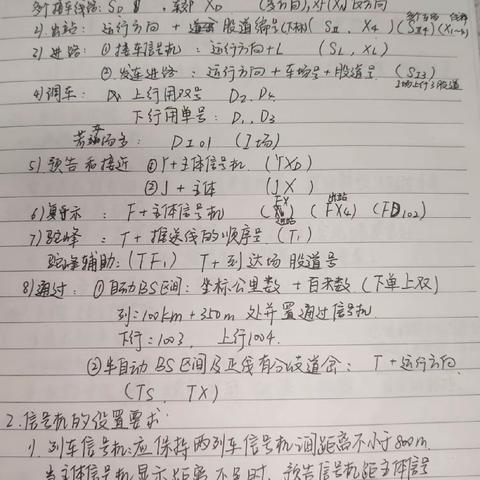 2) 出站: 运行方向 + 股道编号(下标) (SⅡ, X4)
2) 进路: ① 接车信号机: 运行方向+L (SL, XL)
② 发车进路: 运行方向+车场号+股道号 (SI3)
I场上行3股道
4) 调车: 上行用双号 D2、D4
下行用单号: D1、D3
若场多: D101 (I场)
5) 预告和接近 ① Y+主体信号机 (YXD)
② J + 主体 (JX)
6) 复示: F+主体信号机 (FX 进站) (FX4 出站) (FD102)
7) 驼峰: T+推送线的顺序号 (T1)
驼峰辅助: (TF1) T+到达场股道号
8) 通过: ① 自动BS区间: 坐标公里数 + 百米数 (下单上双)
列: 100km+350m 处并置通过信号机
下行: 1003, 上行1004.
② 半自动BS区间及正线有分歧道岔: T+运行方向
(TS, TX)
2. 信号机的设置要求.
1) 列车信号机: 应保持两列车信号机间距离不小于800m
当主体信号机显示距离不足时, 预告信号机距主体信号